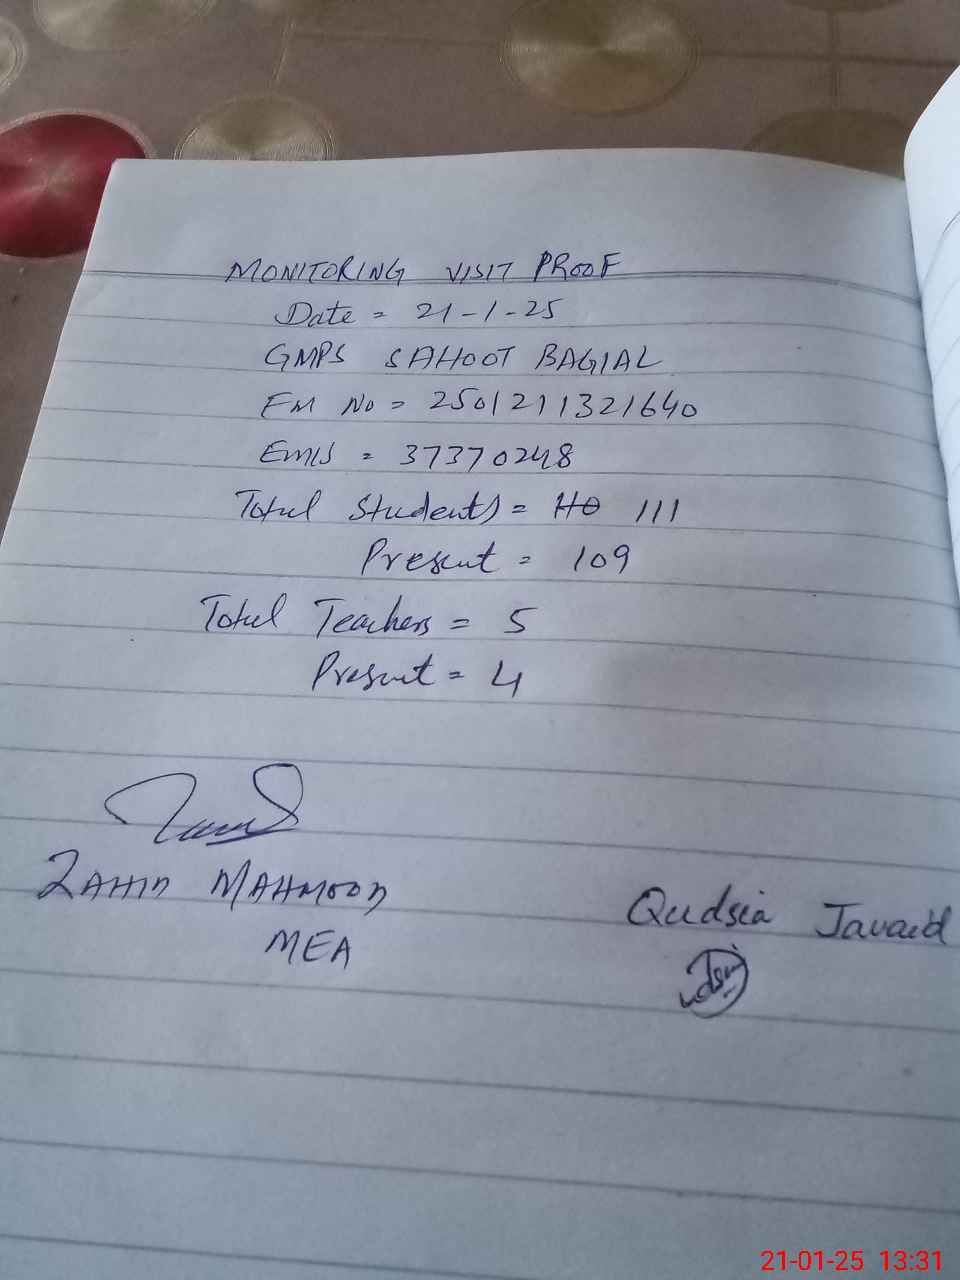 MONITORING VISIT PROOF
Date = 21-1-25
GMPS SAHOOT BAGIAL
FM No = 2501211321640
EMIS = 37370248
Total Students = 110 111
Present = 109
Total Teachers = 5
Present = 4
ZAHID MAHMOOD
MEA
Qudsia Javaid
21-01-25 13:31